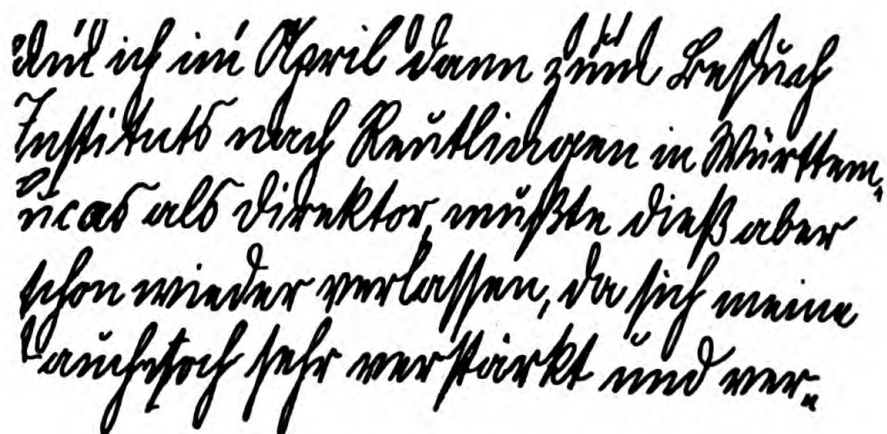 ich im April dann zum Besuch
Instituts nach Reutlingen in Württem-
ucas als Direktor, mußte dieß aber
schon wieder verlassen, da sich meine
auch noch sehr verstärkt und ver-